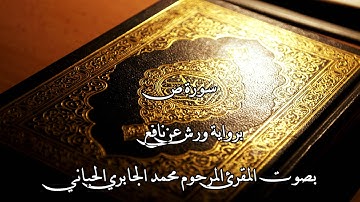 سورة ص
برواية ورش عن نافع
بصوت المقرئ المرحوم محمد الجابري الحياني